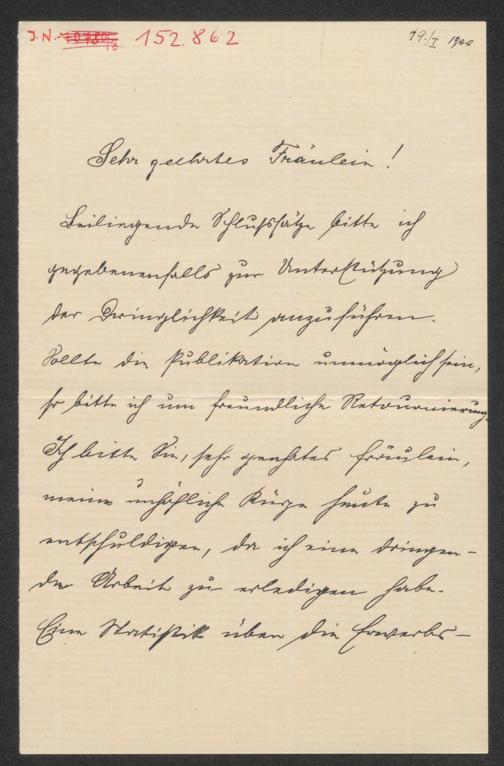 J.N. 152.862
19./I 1900
Sehr geehrtes Fräulein!
Beiliegende Schlußsätze bitte ich
gegebenenfalls zur Unterstützung
der Dringlichkeit anzuführen.
Sollte die Publikation unmöglich sein,
so bitte ich um freundliche Retournierung.
Ich bitte Sie, sehr geehrtes Fräulein,
meine unhöfliche Kürze heute zu
entschuldigen, da ich eine dringen-
de Arbeit zu erledigen habe.
Eine Statistik über die Erwerbs-